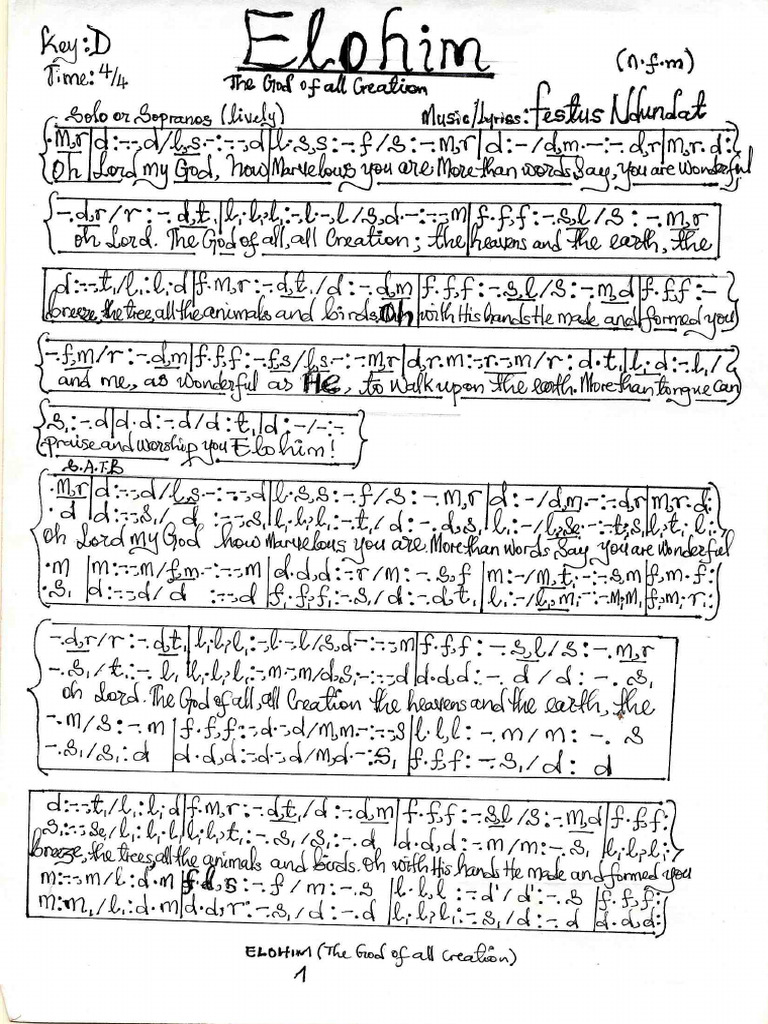 Key: D
Elohim
(n.f.m)
Time: 4/4
The God of all Creation
Solo or Sopranos (lively)
Music/Lyrics: Festus Ndundat
.M,r|d:-:-,d/l,s-:-:,d|l.s,s:-.f/s:-.M,r|d:-/d,m.-:-.d,r|m,r.d:
Oh Lord my God, how Marvelous you are More than words Say, you are Wonderful
-.d,r/r:-.d,t,|l,.l,l,:-,l.-,l/s,d.-:-:-m|f.f,f:-.s,l/s:-.m,r
oh Lord. The God of all, all Creation; the heavens and the earth, the
d:-:-t,/l,:l,.d|f.m,r:-.d,t,/d:-.d,m|f.f,f:-.s,l/s:-.m,d|f.f,f:-
breeze, the trees, all the animals and birds, Oh with His hands He made and formed you
-.f,m/r:-.d,m|f.f,f:-.f,s/l,s.-:-.m,r|d,r.m:-,r.-,m/r:d.t,|l,:d:-.l,/
and me, as Wonderful as He, to walk upon the earth. More than tongue can
s,:-.d|d.d:-.d/d:t,|d:-/-:-
praise and worship you Elohim!
S.A.T.B
.M,r|d:-:-,d/l,s-:-:,d|l.s,s:-.f/s:-.M,r|d:-/d,m.-:-:d,r|m,r.d:
.d|d:-:-s,/d:-:-s,|l,.l,l,:-.t,/d:-.d,s,|l,:-/l,se,.-:-t,s,|l,t,.l,:
oh Lord my God how Marvelous you are More than words Say you are wonderful
.m|m:-:-m/f,m.-:-:-m|d.d,d:-.r/m:-.s,f|m:-/m,t,.-:-.s,m|f,m.f:
.s,|d:-:-d/d:-:-d|f,.f,f,:-.s,/d:-.d,t,|l,:-/l,,m,.-:-.m,m,|f,m,.r,:
-.d,r/r:-.d,t,|l,.l,l,:-,l.-,l/s,d.-:-:-m|f.f,f:-.s,l/s:-.m,r
-.s,/t,:-.l,|l,.l,l,:-,m.-,m/d,s,.-:-:-d|d.d,d:-.d/d:-.s,
oh Lord. The God of all, all Creation the heavens and the earth, the
-.m/s:-.m|f.f,f:-,d.-,d/m,m.-:-:-s|l.l,l:-.m/m:-.s
-.s,/s,:d|d.d,d:-,d.-,d/m,d.-:s,|f.f,f:-.s,/d:d
d:-:-t,/l,:l,.d|f.m,r:-.d,t,/d:-.d,m|f.f,f:-.s,l/s:-.m,d|f.f,f:
s,:-:-se,/l,:l,.l,|l,.l,t,:-.s,/s,:-.d|d.d,d:-.m/m:-.s,|l,.l,l,:
breeze, the trees, all the animals and birds. Oh with His hands He made and formed you
m:-:-m/l:d.m|f.d,s:-.f/m:-.s|l.l,l:-.d'/d':-.s|f.f,f:
m:m,/l,:d.m|d.d,r:-.s,/d:-.d|l,.l,l,:-.s,/d:-.d|d.d,d:
ELOHIM (The God of all Creation)
1